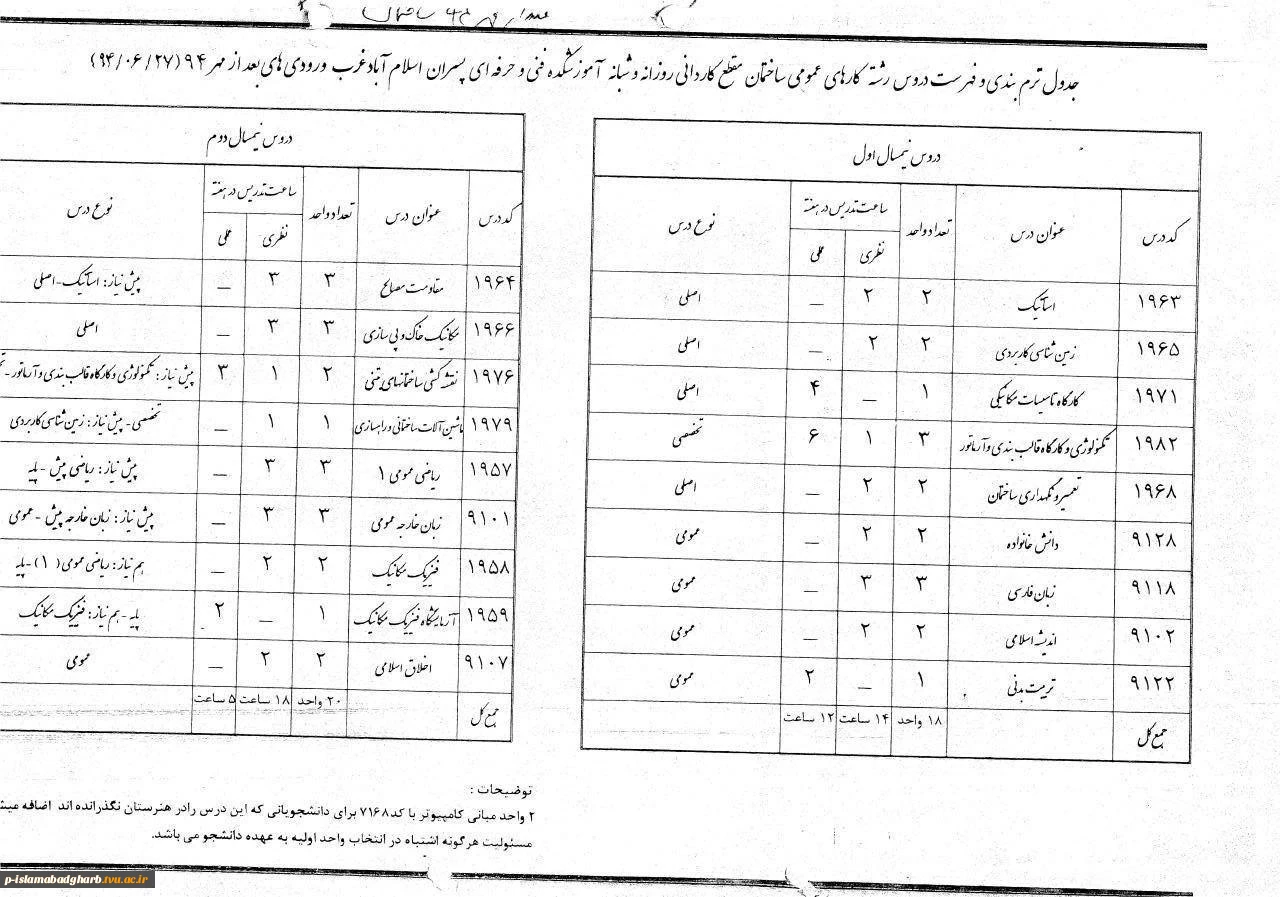 جدول ترم بندی و فهرست دروس رشته کارهای عمومی ساختمان مقطع کاردانی روزانه و شبانه آموزشکده فنی و حرفه ای پسران اسلام آبادغرب ورودی های بعد از مهر ۹۴ (۹۴/۰۶/۲۷)
دروس نیمسال اول
کد درس عنوان درس تعداد واحد ساعت تدریس در هفته نوع درس
نظری عملی
۱۹۶۳ استاتیک ۲ ۲ _ اصلی
۱۹۶۵ زمین شناسی کاربردی ۲ ۲ _ اصلی
۱۹۷۱ کارگاه تاسیسات مکانیکی ۱ _ ۴ اصلی
۱۹۸۲ تکنولوژی و کارگاه قالب بندی و آرماتور ۳ ۱ ۶ تخصصی
۱۹۶۸ تعمیر و نگهداری ساختمان ۲ ۲ _ اصلی
۹۱۲۸ دانش خانواده ۲ ۲ _ عمومی
۹۱۱۸ زبان فارسی ۳ ۳ _ عمومی
۹۱۰۲ اندیشه اسلامی ۲ ۲ _ عمومی
۹۱۲۲ تربیت بدنی ۱ _ ۲ عمومی
جمع کل ۱۸ واحد ۱۴ ساعت ۱۲ ساعت
دروس نیمسال دوم
کد درس عنوان درس تعداد واحد ساعت تدریس در هفته نوع درس
نظری عملی
۱۹۶۴ مقاومت مصالح ۳ ۳ _ پیش نیاز: استاتیک-اصلی
۱۹۶۶ مکانیک خاک و پی سازی ۳ ۳ _ اصلی
۱۹۷۶ نقشه کشی ساختمانهای بتنی ۲ ۱ ۳ پیش نیاز: تکنولوژی و کارگاه قالب بندی و آرماتور-
۱۹۷۹ ماشین آلات ساختمانی و راهسازی ۱ ۱ _ تخصصی- پیش نیاز: زمین شناسی کاربردی
۱۹۵۷ ریاضی عمومی ۱ ۳ ۳ _ پیش نیاز: ریاضی پیش -پایه
۹۱۰۱ زبان خارجه عمومی ۳ ۳ _ پیش نیاز: زبان خارجه پیش -عمومی
۱۹۵۸ فیزیک مکانیک ۲ ۲ _ هم نیاز: ریاضی عمومی (۱)-پایه
۱۹۵۹ آزمایشگاه فیزیک مکانیک ۱ _ ۲ پایه-هم نیاز: فیزیک مکانیک
۹۱۰۷ اخلاق اسلامی ۲ ۲ _ عمومی
جمع کل ۲۰ واحد ۱۸ ساعت ۵ ساعت
توضیحات :
۲ واحد مبانی کامپیوتر با کد ۷۱۶۸ برای دانشجویانی که این درس رادر هنرستان نگذرانده اند اضافه
مسئولیت هرگونه اشتباه در انتخاب واحد اولیه به عهده دانشجو می باشد.
p-islamabadgharb.tvu.ac.ir